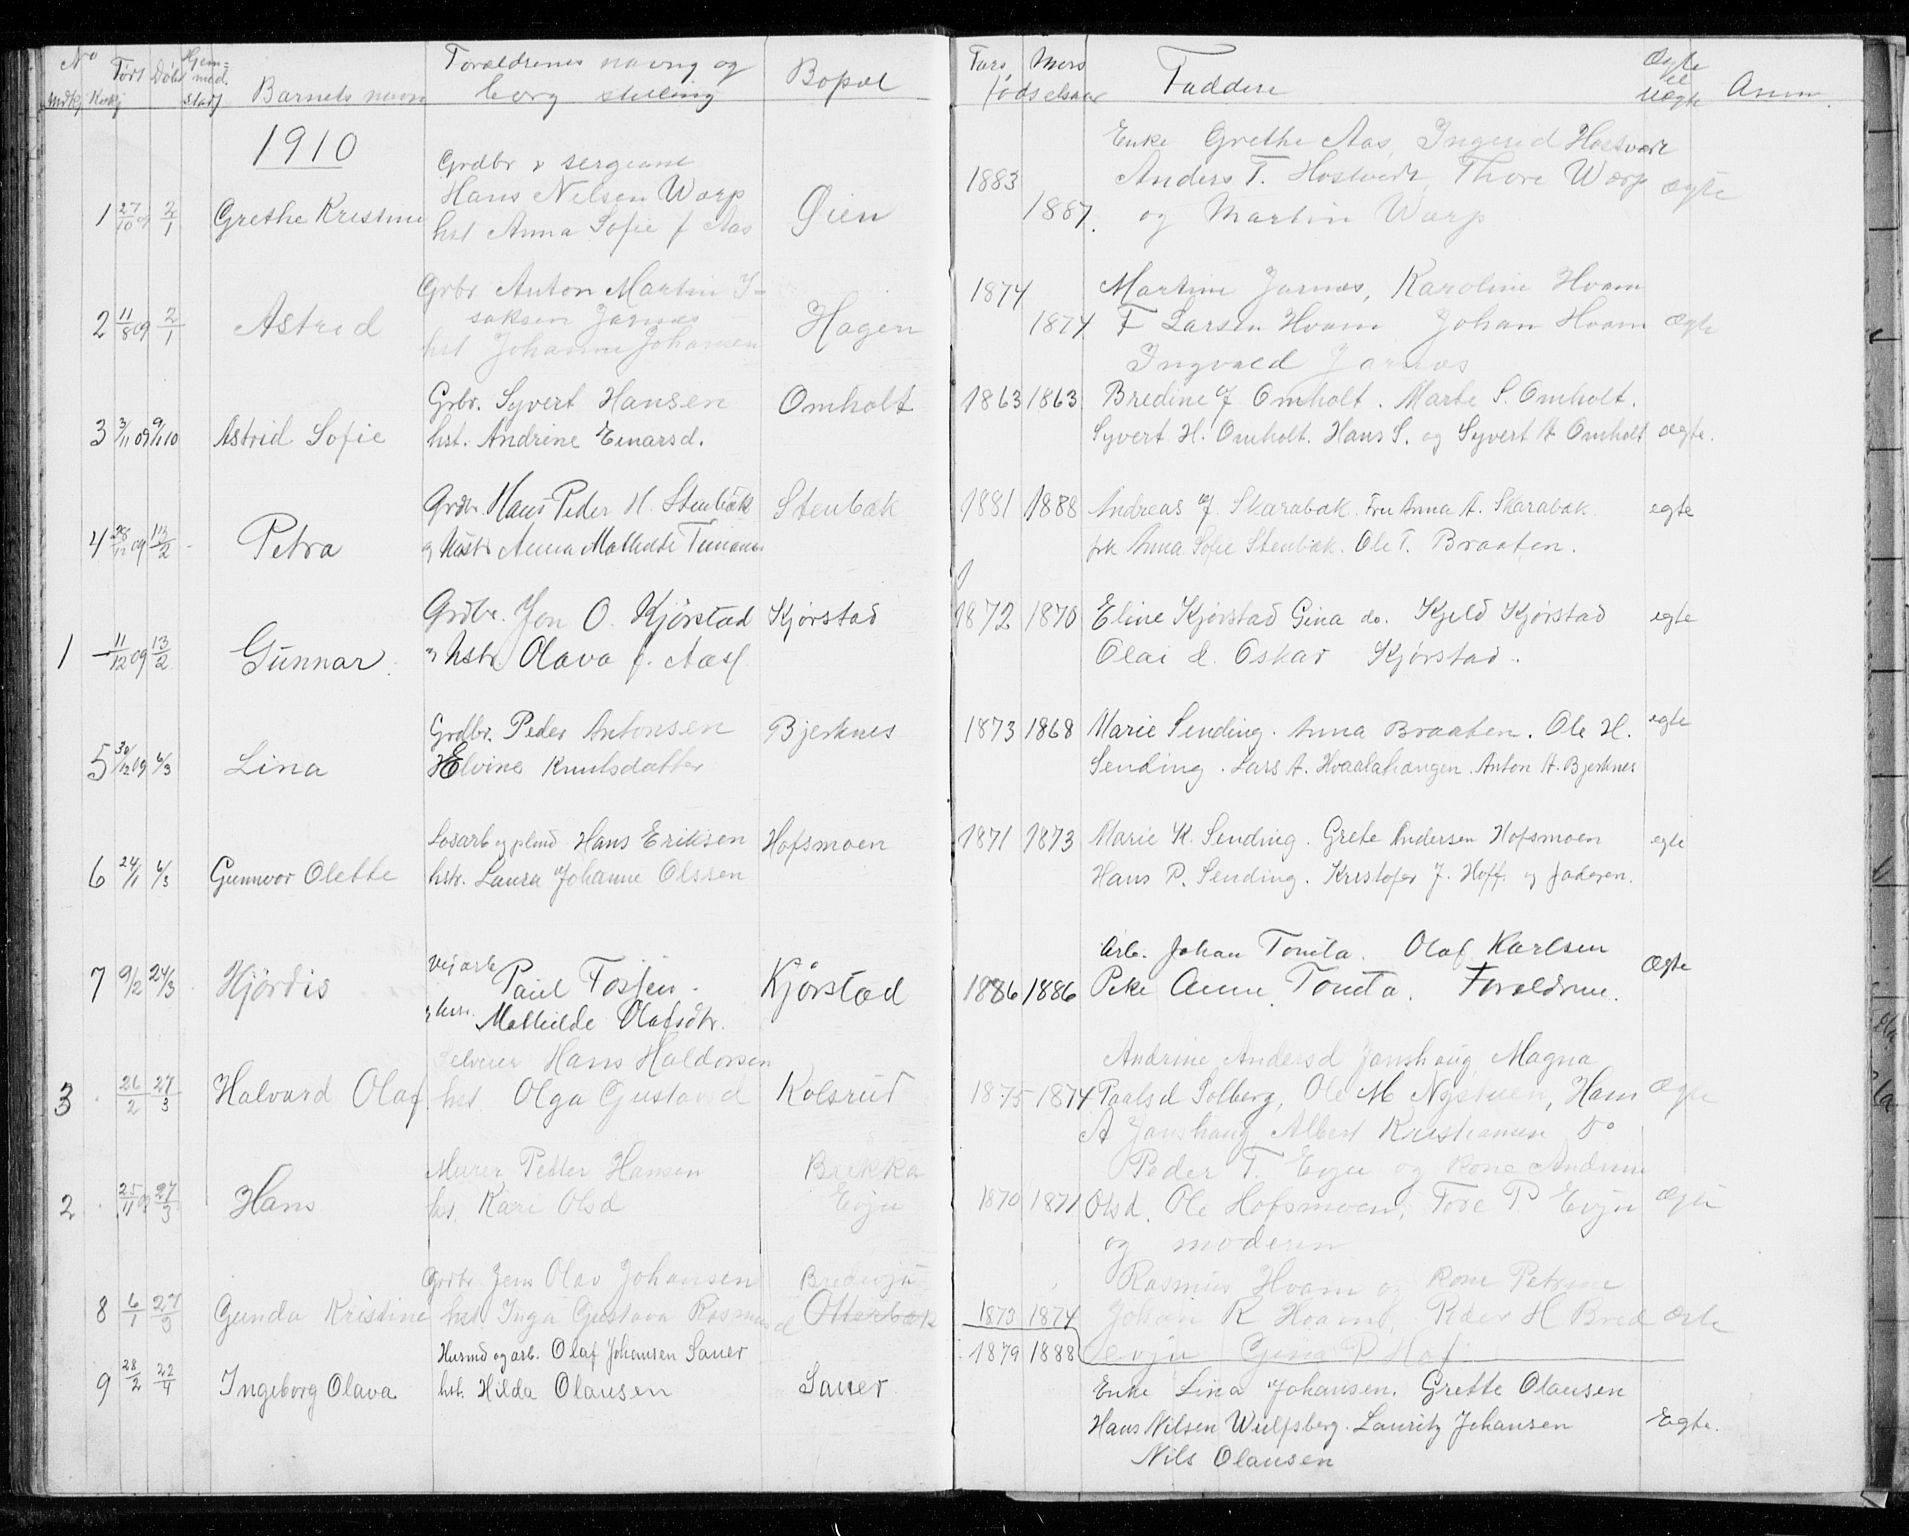 No Født Døbt Hjem= Forældrenes navn og Bopæl
mdk kvkj med. borg stilling
stadf Barnets navn
Fars Mors Faddere Ægte Anm
fødselsaar el
uægte
1910
Grdbr & sergeant
1 27/10 09 2/1 Grethe Kristine Hans Nielsen Warp Øien
hst Anna Sofie f Aas
Enke Grethe Aas, Ingerid Hostvedt
1883 Anders T. Hostvedt, Thore Warp ægte
1887. og Martin Warp
Grbr Anton Martin I-
2 11/8 09 2/1 Astrid saksen Jarnæs Hagen
hst Johanne Johansen
1874 Martine Jarnæs, Karoline Hvam
1874 F Larsen Hvam Johan Hvam ægte
Ingvald Jarnæs
Grbr. Syvert Hansen Omholt
3 3/11 09 9/1 10 Astrid Sofie hst. Andrine Einarsd.
1863 1863 Bredine J Omholt. Marte S. Omholt.
Syvert H. Omholt. Hans S. og Syvert A Omholt ægte.
Grdbr. Hans Peder H. Stenbæk Stenbæk
4 28/12 09 13/2 Petra og Hustr Anna Mathilde
1881 1888 Andreas J. Skarabak. Fru Anna A. Skarabak egte
frk Anna Sofie Stenbæk. Ole T. Braaten.
Grdbr. Jon O. Kjörstad Kjørstad
1 11/12 09 13/2 Gunnar. og hstr Olava f. Aas
1872 1870 Eline Kjørstad Gina do. Kjeld Kjørstad egte
Olai & Oskar Kjørstad.
Grdbr. Peder Antonsen Bjerknes
5 30/12 09 6/3 Lina Elvine Knutsdatter
1873 1868 Marie Sending. Anna Braaten. Ole H. egte
Sending. Lars A. Hvaalahaugen. Anton A. Bjerknes
Løsarb og plmd Hans Eriksen Hofsmoen
6 24/1 6/3 Gunnvor Olette hstr. Laura Johanne Olssen
1871 1873 Marie K. Sending. Grete Andersen Hofsmoen egte
Hans P. Sending. Kristofer J. Hoff. og faderen.
Veiarb
7 9/2 24/3 Hjördis Paul Fossen. Kjørstad
og hstr. Mathilde Olafsdtr.
Arb. Johan Tomta. Olaf Karlsen
1886 1886 Pike Anne Tomta. Foreldrene. Ægte
Selveier Hans Haldorsen
3 26/2 27/3 Halvard Olaf hst. Olga Gustavsd Kolsrud
Andrine Andersd Janshaug, Magna
1875 1874 Paalsd Solberg, Ole M Nystuen, Hans ægte
A Janshaug Albert Kristiansen Do
Murer Petter Hansen Bækka
2 25/11 09 27/3 Hans hs. Kari Olsd Evju
Peder T. Evju og kone Andrine
1870 1871 Olsd. Ole Hofsmoen, Tove P. Evju ægte
og moderen
Grdbr Jens Olav Johansen Bredevju
8 6/1 27/3 Gunda Kristine hst Inga Gustava Rasmusd Otterbæk
Rasmus Hvam og kone Petrine
1873 1874 Johan R Hvam, Peder H Bred ægte
evju Gina P Hof
Husmd og arb. Olaf Johansen Sauer
9 28/2 22/4 Ingeborg Olava hst. Hilda Olausen Sauer
1879 1888
Enke Lina Johansen. Grette Olausen
Hans Nilsen Wulfsberg. Lauritz Johansen Egte.
Nils Olausen